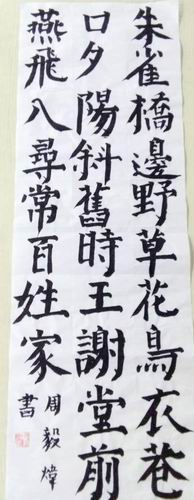 朱雀橋邊野草花鳥衣巷
口夕陽斜舊時王謝堂前
燕飛八尋常百姓家
周毅煒
書